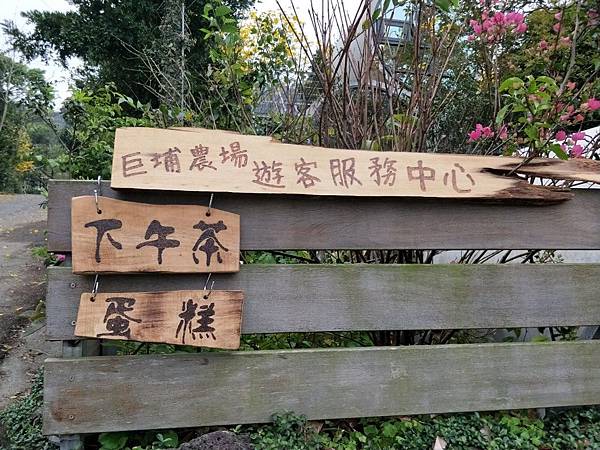 巨埔農場遊客服務中心
下午茶
蛋糕